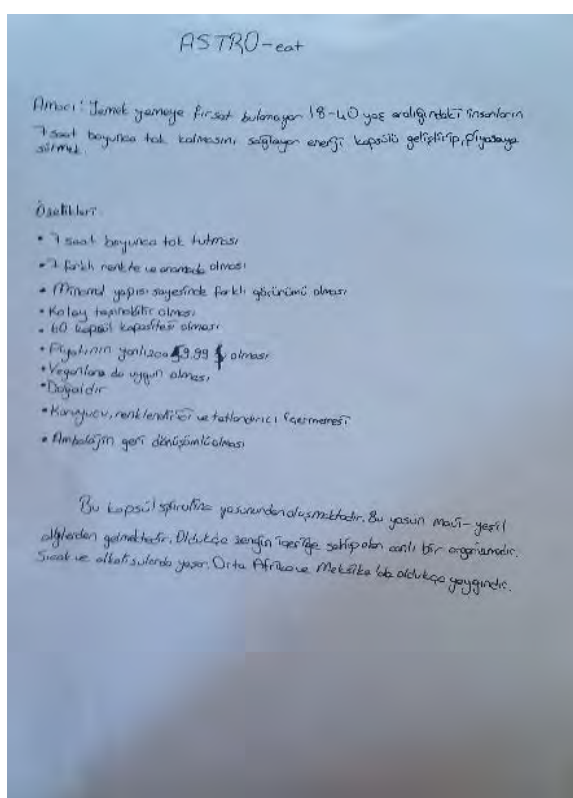 ASTRO-eat
Amacı: Yemek yemeye fırsat bulamayan 18-40 yaş aralığındaki insanların
7 saat boyunca tok kalmasını sağlayan enerji kapsülü geliştirip, piyasaya
sürmek.
Özellikleri
• 7 saat boyunca tok tutması
• 7 farklı renkte ve aromada olması
• Minimal yapısı sayesinde farklı görünümü olması
• Kolay taşınabilir olması
• 60 kapsül kapasitesi olması
• Fiyatının yanlızca 59.99 $ olması
• Veganlara da uygun olması
• Doğaldır
• Koruyucu, renklendirici ve tatlandırıcı içermemesi
• Ambalajın geri dönüşümlü olması
Bu kapsül spirulina yosunundan oluşmaktadır. Bu yosun mavi-yeşil
alglerden gelmektedir. Oldukça zengin içeriğe sahip olan canlı bir organizmadır.
Sıcak ve alkali sularda yaşar. Orta Afrika ve Meksika'da oldukça yaygındır.